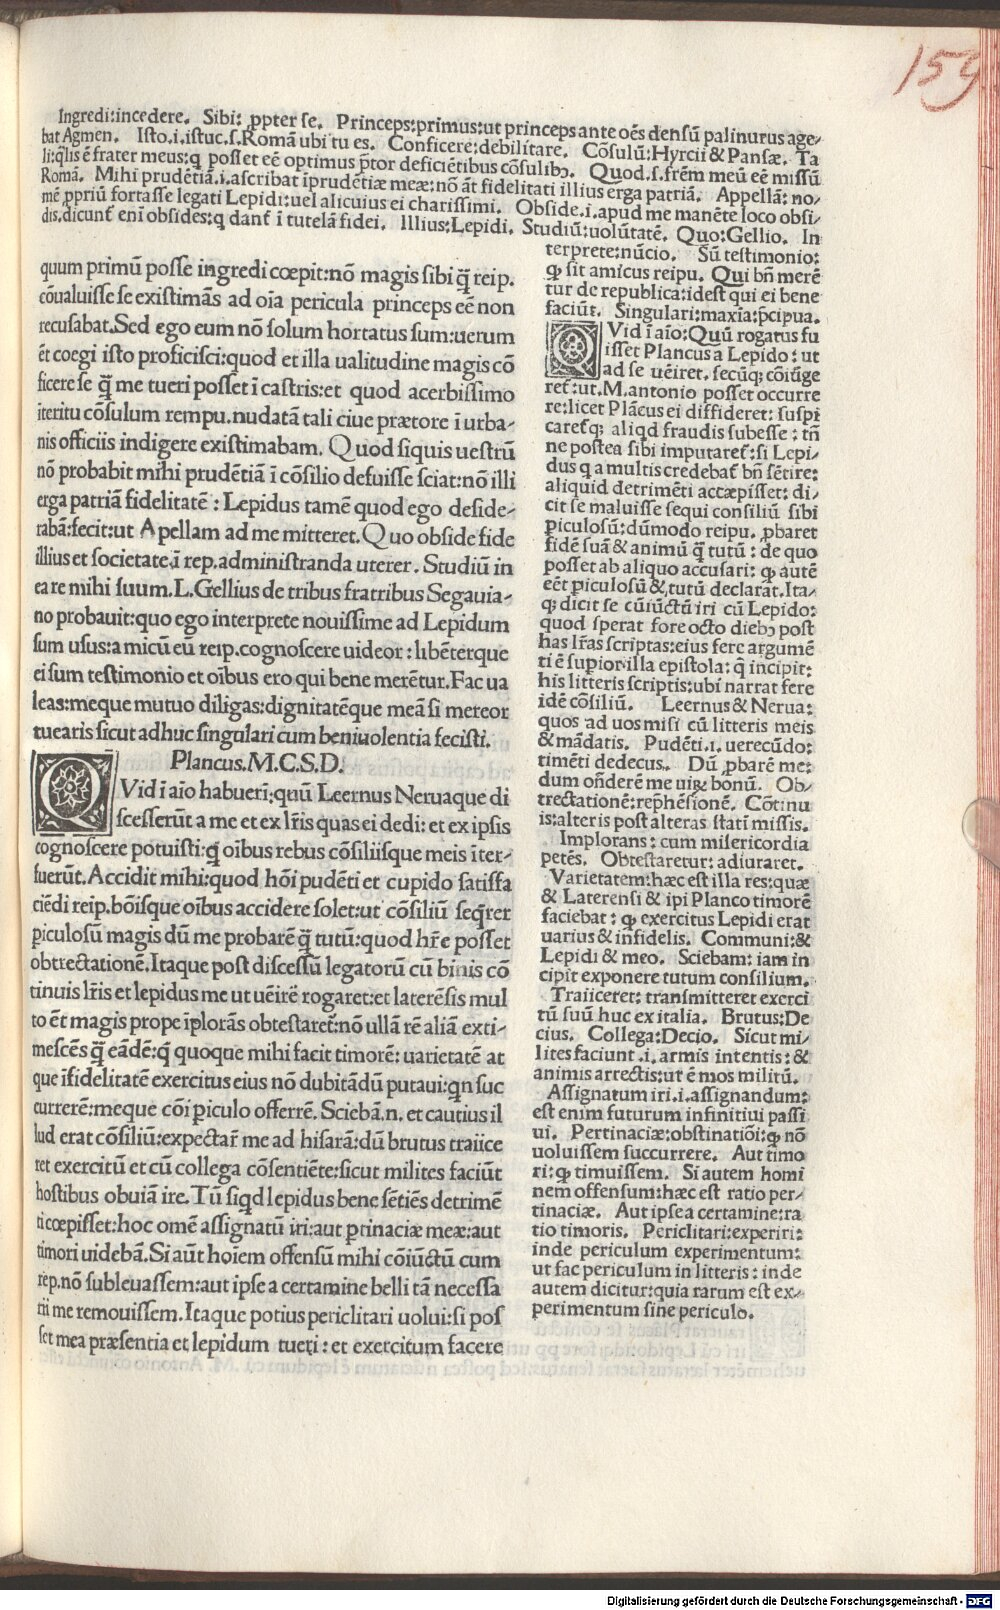 159
Ingredi:incedere. Sibi: ꝓpter se. Princeps:primus:ut princeps ante oēs densū palinurus age-
bat Agmen. Isto.i.istuc.s.Romā ubi tu es. Conficere:debilitare. Cōsulū:Hyrcii & Pansæ. Ta
li:q̄lis ē frater meus:q̄ posset eē optimus p̄tor deficiētibus cōsulibꝫ. Quod.s.frēm meū eē missū
Romā. Mihi prudētiā.i.ascribat īprudētiæ meæ:nō āt fidelitati illius erga patriā. Appellā: no-
mē ꝓpriū fortasse legati Lepidi:uel alicuius ei charissimi. Obside.i.apud me manēte loco obsi-
dis.dicunt̄ eni obsides:q dant̄ ī tutelā fidei. Illius:Lepidi. Studiū:uolūtatē. Quo:Gellio. In
quum primū posse ingredi cœpit:nō magis sibi q̄ reip.
cōualuisse se existimās ad oīa pericula princeps eē non
recusabat.Sed ego eum nō solum hortatus sum:uerum
ēt coegi isto proficisci:quod et illa ualitudine magis cō
ficere se q̄ me tueri posset ī castris:et quod acerbissimo
īteritu cōsulum rempu.nudatā tali ciue prætore ī urba-
nis officiis indigere existimabam. Quod siquis uestrū
nō probabit mihi prudētiā ī cōsilio defuisse sciat:nō illi
erga patriā fidelitatē : Lepidus tamē quod ego deside-
rabā:fecit:ut Apellam ad me mitteret.Quo obside fide
illius et societate,ī rep.administranda uterer. Studiū in
ea re mihi suum.L.Gellius de tribus fratribus Segauia-
no probauit:quo ego interprete nouissime ad Lepidum
sum usus:amicū eū reip.cognoscere uideor : libēterque
ei sum testimonio et oībus ero qui bene merētur.Fac ua
leas:meque mutuo diligas:dignitatēque meā si mereor
tuearis sicut adhuc singulari cum beniuolentia fecisti.
Plancus.M.C.S.D.
QVid ī aīo habueri:quū Leernus Neruaque di
scesserūt a me et ex lr̄is quas ei dedi: et ex ipsis
cognoscere potuisti:q̄ oībus rebus cōsiliisque meis īter-
fuerūt.Accidit mihi:quod hōi pudēti et cupido satisfa
ciēdi reip.bōisque oībus accidere solet:ut cōsiliū seq̄rer
piculosū magis dū me probarē q̄ tutū:quod hr̄e posset
obtrectationē.Itaque post discessū legatorū cū binis cō
tinuis lr̄is et lepidus me ut uēirē rogaret:et laterēsis mul
to ēt magis prope īplorās obtestaret̄:nō ullā rē aliā exti-
mescēs q̄ eādē:q̄ quoque mihi facit timorē: uarietatē at
que īfidelitatē exercitus eius nō dubitādū putaui:qn suc
currerē:meque cōi piculo offerrē. Sciebā.n. et cautius il
lud erat cōsiliū:expectar̄ me ad hisarā:dū brutus traiice
ret exercitū et cū collega cōsentiēte:sicut milites faciūt
hostibus obuiā ire.Tū siqd lepidus bene sētiēs detrimē
ti cœpisset:hoc omē assignatū iri:aut ptinaciæ meæ:aut
timori uidebā.Si aūt hoīem offensū mihi cōiūctū cum
rep.nō subleuassem:aut ipse a certamine belli tā necessa
rii me remouissem.Itaque potius periclitari uolui:si pos
set mea præsentia et lepidum tueri : et exercitum facere
terprete:nūcio. Sū testimonio:
ꝙ sit amicus reipu. Qui bn̄ merē
tur de republica:idest qui ei bene
faciūt. Singulari:maxīa:p̄cipua.
QVid ī aīo:Quū rogatus fu
isset Plancus a Lepido : ut
ad se uēiret. secūqꝫ cōiūge
ret̄:ut.M.antonio posset occurre
re:licet Plācus ei diffideret: suspi
caret̄qꝫ aliqd fraudis subesse : tn̄
ne postea sibi imputaret̄:si Lepi-
dus q a multis credebat̄ bn̄ sētire:
aliquid detrimēti accæpisset: di-
cit se maluisse sequi consiliū sibi
piculosū:dūmodo reipu. ꝓbaret
fidē suā & animū q̄ tutū : de quo
posset ab aliquo accusari: ꝙ autē
eēt piculosū &,tutū declarat.Ita-
qꝫ dicit se cūiūctū iri cū Lepido:
quod sperat fore octo diebꝫ post
has lr̄as scriptas:eius fere argumē
ti ē supior illa epistola: q̄ incipit:
his litteris scriptis:ubi narrat fere
idē cōsiliū. Leernus & Nerua:
quos ad uos misi cū litteris meis
& mādatis. Pudēti.i. uerecūdo:
timēti dedecus. Dū ꝓbarē me:
dum on̄derē me uirꝫ bonū. Ob-
trectationē:rep̄hēsionē. Cōtinu
is:alteris post alteras statī missis.
Implorans : cum misericordia
petēs. Obtestaretur: adiuraret.
Varietatem:hæc est illa res:quæ
& Laterensi & ipi Planco timorē
faciebat : ꝙ exercitus Lepidi erat
uarius & infidelis. Communi:&
Lepidi & meo. Sciebam: iam in
cipit exponere tutum consilium.
Traiiceret: transmitteret exerci
tū suū huc ex italia. Brutus:De
cius. Collega:Decio. Sicut mi-
lites faciunt .i. armis intentis: &
animis arrectis:ut ē mos militū.
Assignatum iri.i.assignandum:
est enim futurum infinitiui passi
ui. Pertinaciæ:obstinatiōi:ꝙ nō
uoluissem succurrere. Aut timo
ri:ꝙ timuissem. Si autem homi
nem offensum:hæc est ratio per-
tinaciæ. Aut ipse a certamine:ra
tio timoris. Periclitari:experiri:
inde periculum experimentum:
ut fac periculum in litteris : inde
autem dicitur:quia rarum est ex-
perimentum sine periculo.
Digitalisierung gefördert durch die Deutsche Forschungsgemeinschaft - DFG